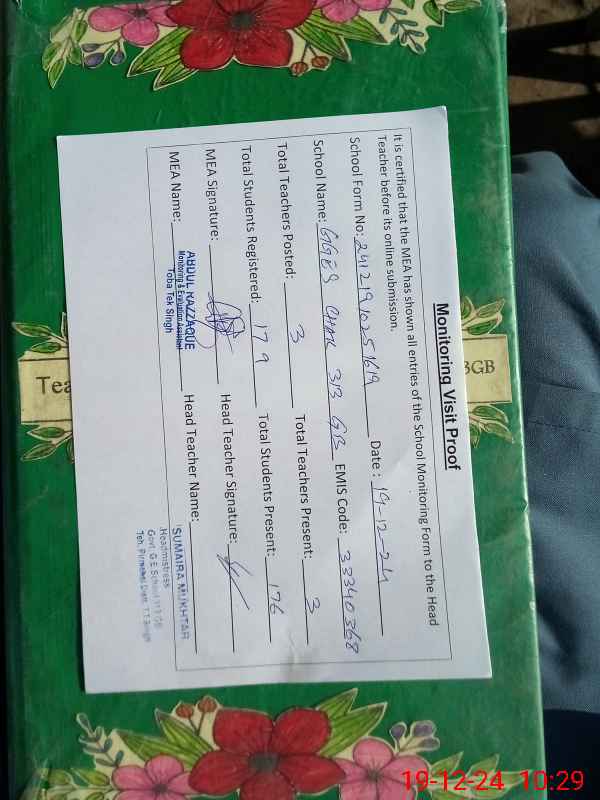 Monitoring Visit Proof
It is certified that the MEA has shown all entries of the School Monitoring Form to the Head
Teacher before its online submission.
School Form No: 24121910251619 Date: 19-12-24
School Name: GGES CHAK 313 GB EMIS Code: 33340368
Total Teachers Posted: 3 Total Teachers Present: 3
Total Students Registered: 179 Total Students Present: 176
MEA Signature: Head Teacher Signature:
MEA Name: ABDUL RAZZAQUE Head Teacher Name: SUMAIRA MUKHTAR
Monitoring & Evaluation Assistant
Toba Tek Singh
Headmistress
Govt. G.E School 313 GB
Teh. Pirmahal Distt. T.T.Singh
Tea
3GB
19-12-24 10:29